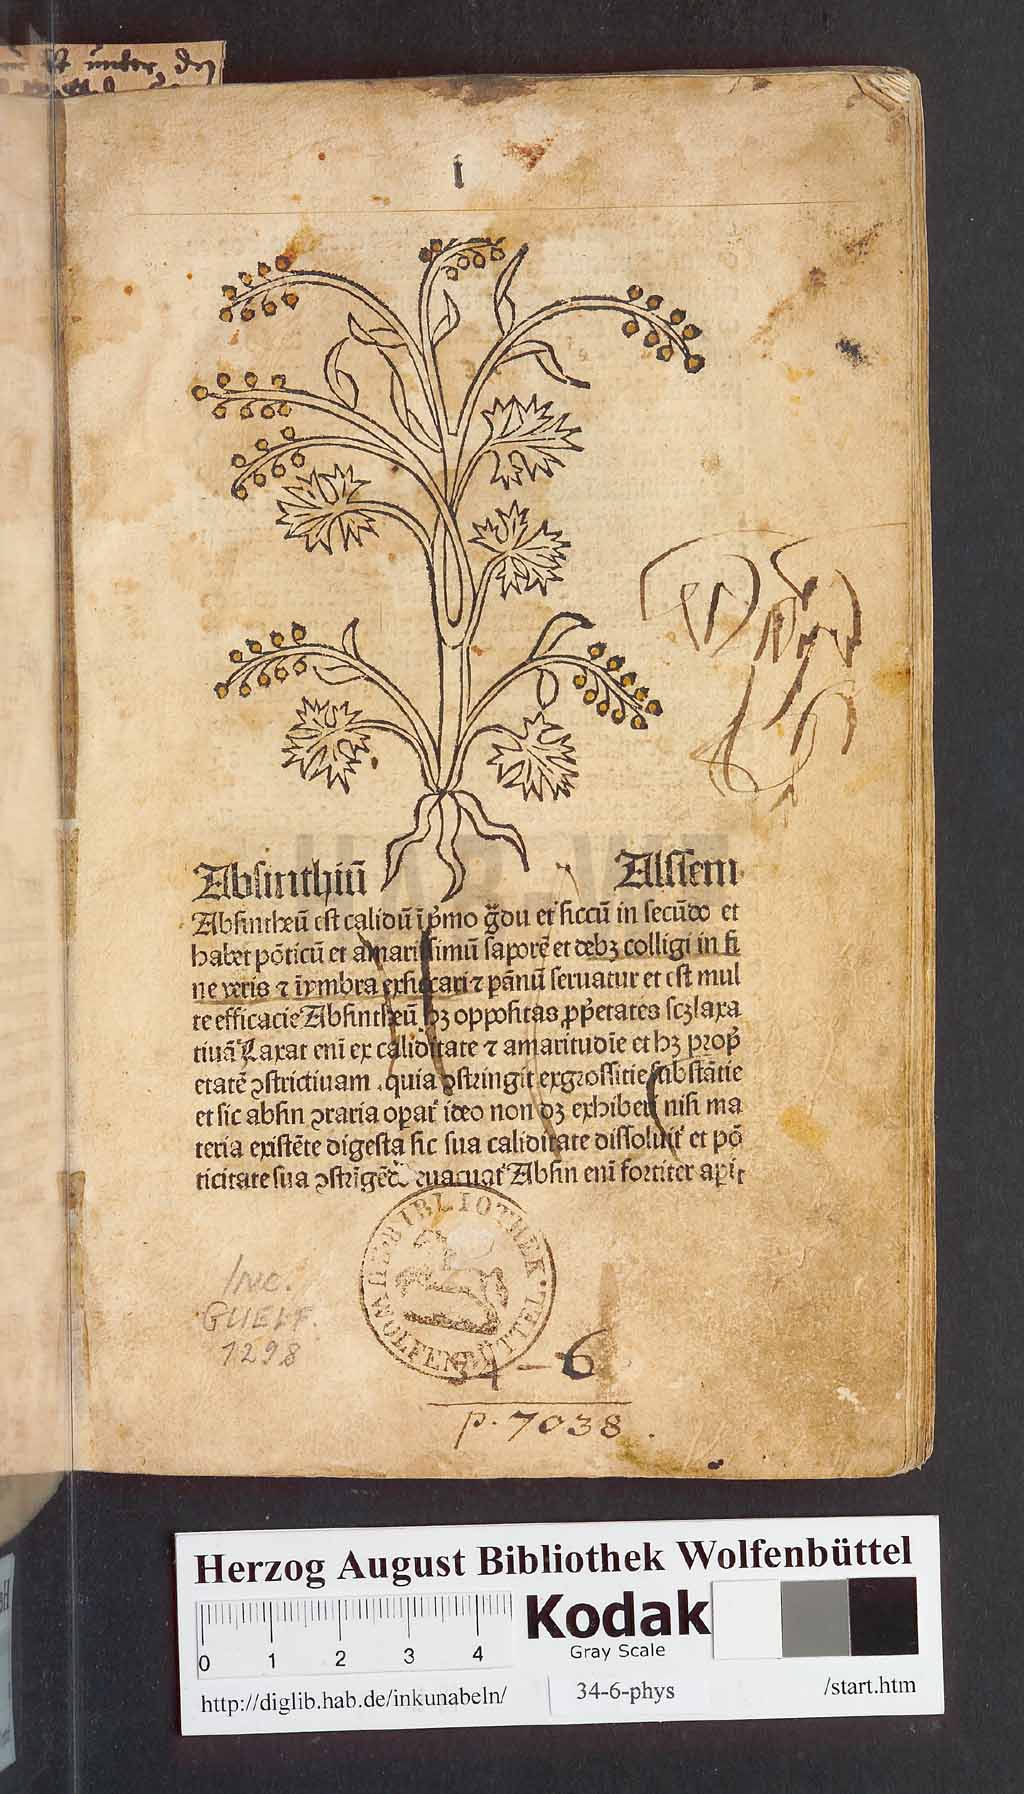 unter den
i
Absinthiū Alssem
Absintheū est calidū ī pͥmo gͣdu et siccū in secūdo et
habet pōticū et amarissimū saporē et debꝫ colligi in fi
ne veris ⁊ ī vmbra exsiccari ⁊ p ānū seruatur et est mul
te efficacie Absintheū hꝫ oppositas ꝓpͥetates scꝫ laxa
tiuā Laxat enī ex caliditate ⁊ amaritudīe et hꝫ propͥ
etatē ꝯstrictiuam . quia ꝯstringit ex grossitie substātie
et sic absin ꝯtraria operat᷑ ideo non dꝫ exhiberi nisi ma
teria existēte digesta sic sua caliditate dissoluit᷑ et pō
ticitate sua ꝯstrīgēdo euacuat᷑ Absin enī fortiter apit
BIBLIOTHEK
WOLFENBÜTTEL
Inc.
GUELF.
1298
34-6
p. 7038.
Herzog August Bibliothek Wolfenbüttel
0 1 2 3 4
Kodak
Gray Scale
http://diglib.hab.de/inkunabeln/ 34-6-phys /start.htm